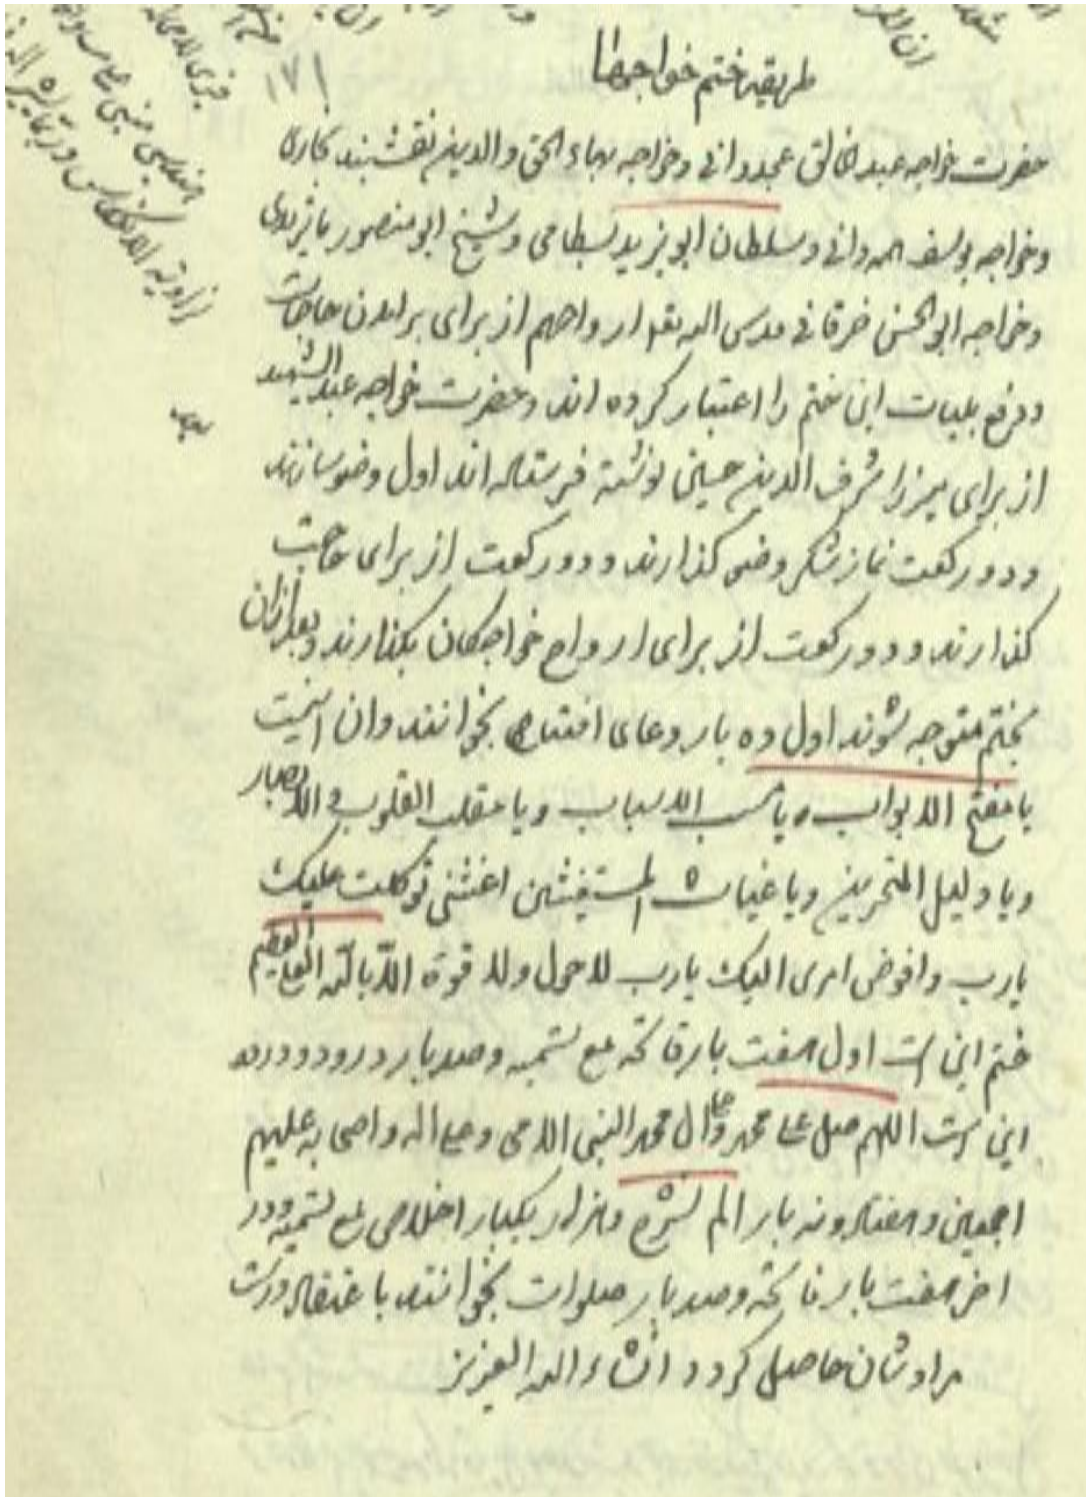 طریقه ختم خواجها
١٧١
حضرت خواجه عبد الخالق غجدوانی و خواجه بهاء الحق والدین نقشبند بخاری
و خواجه یوسف همدانی و سلطان ابو یزید بسطامی و شیخ ابو منصور ماتریدی
و خواجه ابو الحسن خرقانی قدس الله تعالی ارواحهم از برای برامدن حاجات
و دفع بلیات این ختم را اعتبار کرده اند و حضرت خواجه عبد الشهید
از برای میرزا شرف الدین حسین نوشته فرستاده اند اول وضو سازند
و دو رکعت نماز شکر وضو کذارند و دو رکعت از برای حاجت
کذارند و دو رکعت از برای ارواح خواجکان بکذارند و بعد ازان
بختم متوجه شوند اول ده بار دعای افتتاح بخوانند وان اینست
یا مفتح الابواب و یا مسبب الاسباب ویا مقلب القلوب و الابصار
ویا دلیل المتحیرین ویا غیاث المستغیثین اغثنی توکلت علیک
یارب وافوض امری الیک یارب لاحول ولا قوة الا بالله العلی العظیم
ختم این است اول هفت بار فاتحه مع تسمیه وصد بار درود و درود
این است اللهم صل علی محمد وعلی ال محمد النبی الامی وعلی اله واصحابه علیهم
اجمعین و هفتاد و نه بار الم نشرح و هزار یکبار اخلاص مع تسمیه و در
اخر هفت بار فاتحه وصد بار صلوات بخوانند با عتقاد درست
مرادشان حاصل کردد انشاء الله العزیز